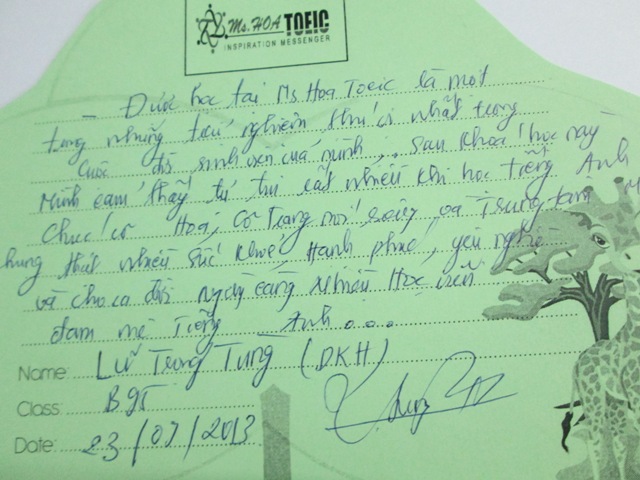 Ms. HOA TOEIC
INSPIRATION MESSENGER
- Được học tại Ms Hoa Toeic là một
trong những trải nghiệm thú vị nhất trong
cuộc đời sinh viên của mình, sau khoá học này
mình cảm thấy tự tin rất nhiều khi học tiếng Anh
Chúc cô Hoa, cô Trang và Trung tâm
chung thật nhiều sức khoẻ, Hạnh phúc, yêu nghề
và cho ra đời ngày càng nhiều Học viên
đam mê Tiếng Anh...
Name: Lư Trọng Tùng (DKH)
Class: B9T
Date: 23/07/2013